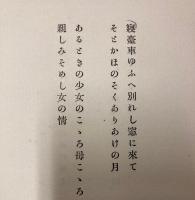 寝臺車ゆふべ別れし窓に來て
そとかほのぞくありあけの月
あるときの少女のこゝろ母こゝろ
親しみそめし女の情